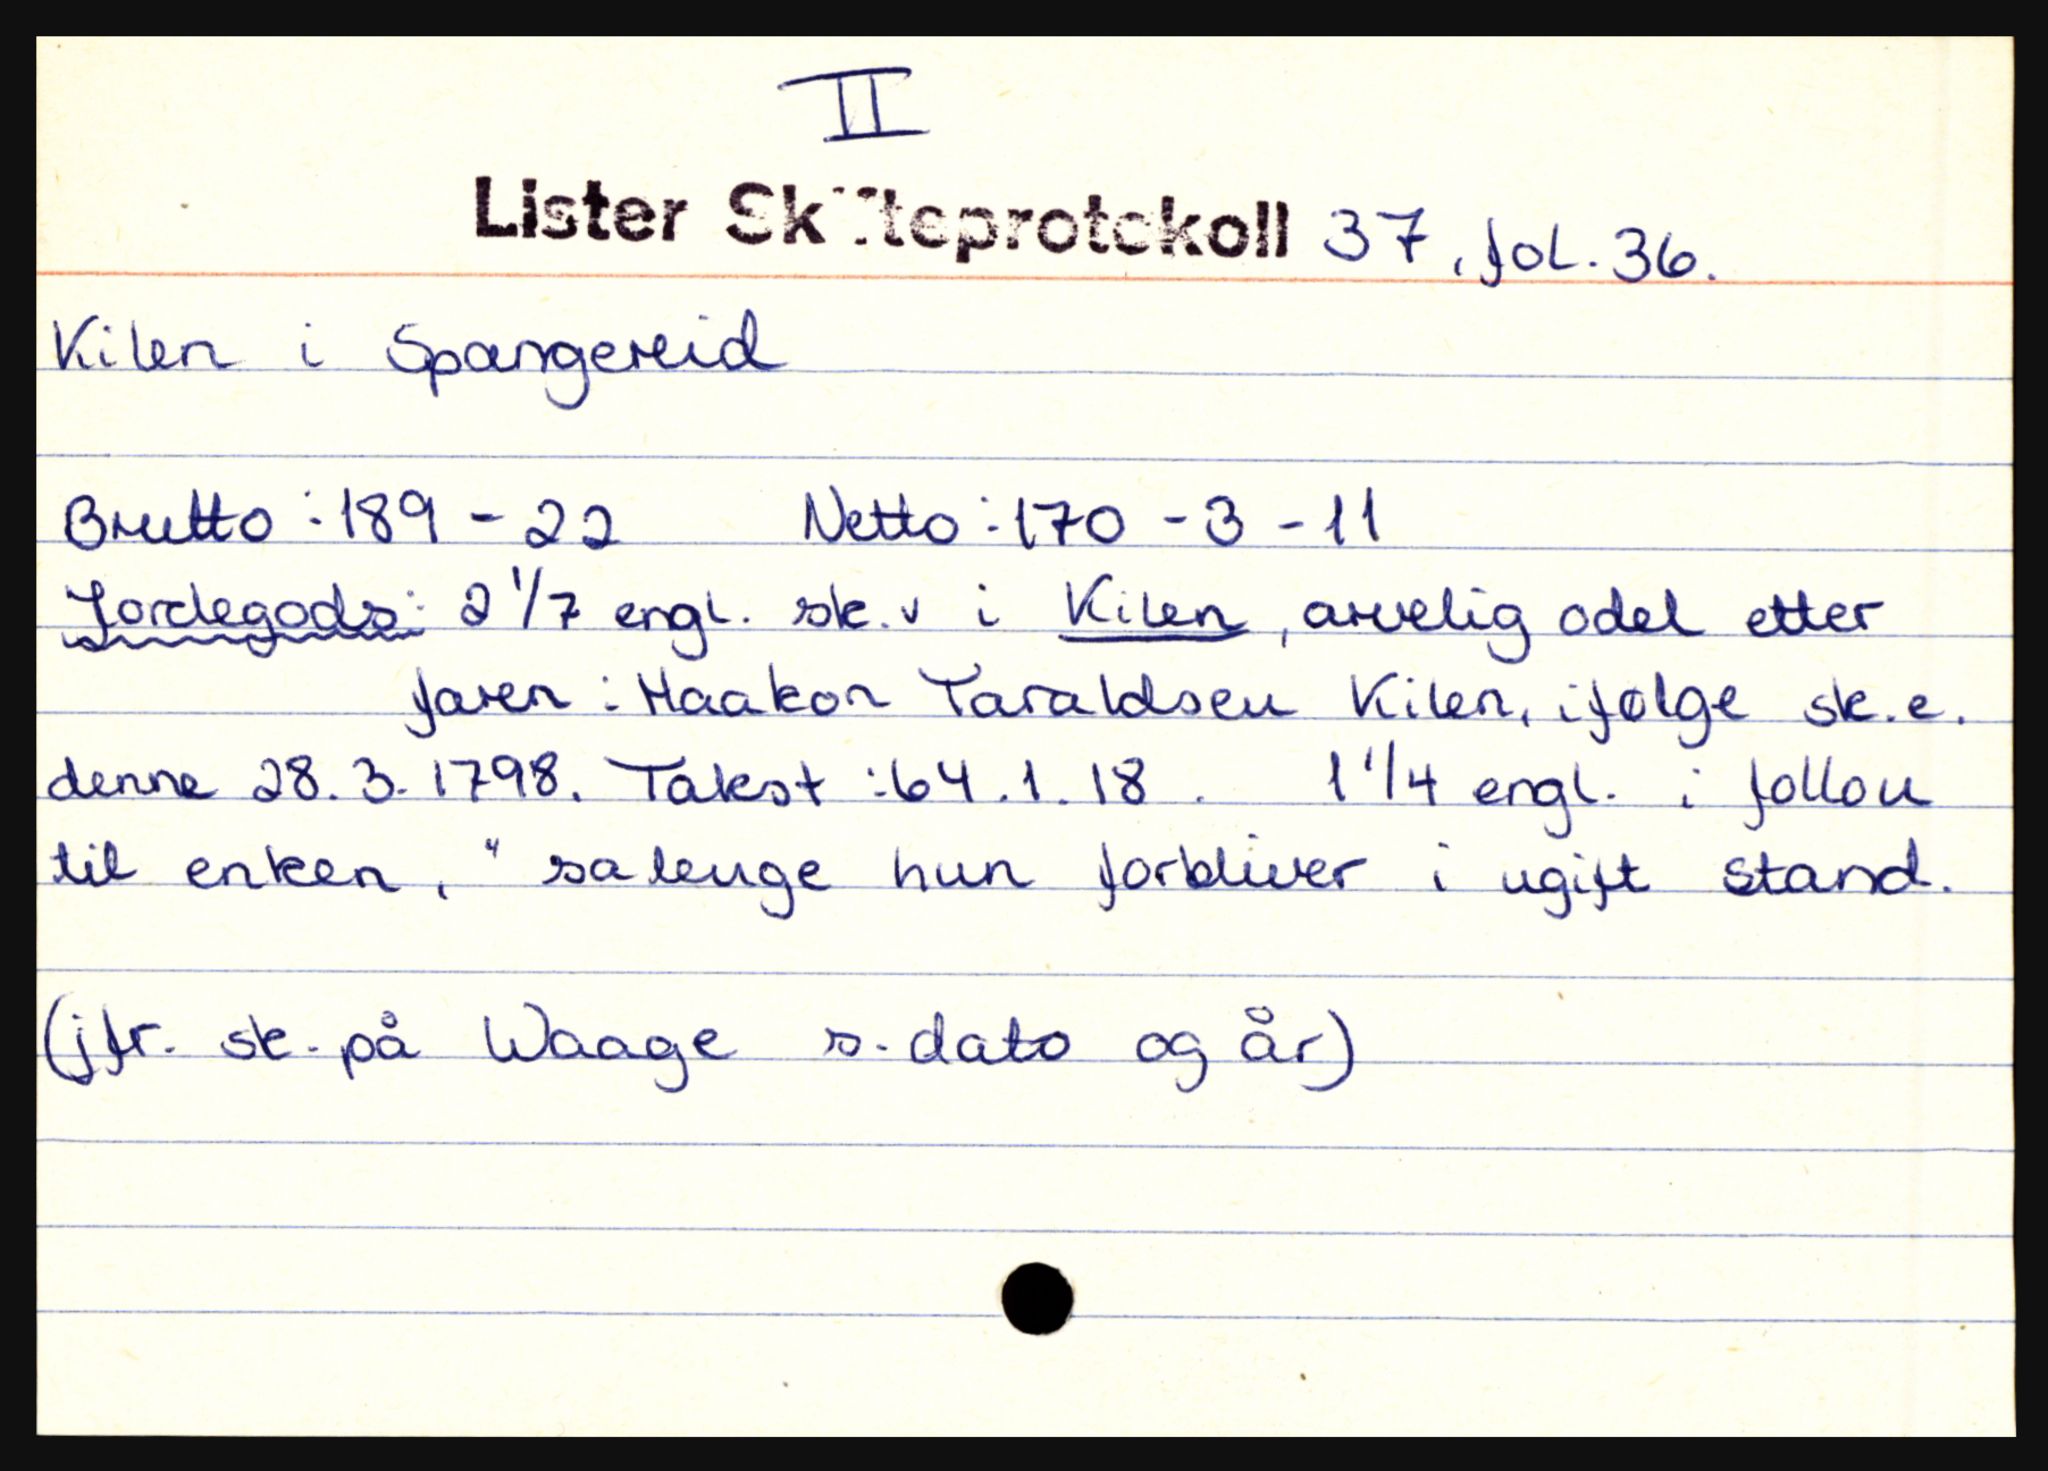 II
Lister Skifteprotokoll 37, fol. 36.
Kilen i Spangereid
Brutto : 189 - 22 Netto : 170 - 3 - 11
Jordegods: 2 1/7 engl. sk. v i Kilen, arvelig odel etter
faren : Haakon Taraldsen Kilen, ifølge sk. e.
denne 28. 3. 1798. Takst : 64. 1. 18. 1 1/4 engl. i follou
til enken, " sa lenge hun forbliver i ugift stand.
(jfr. sk. på Waage s. dato og år)